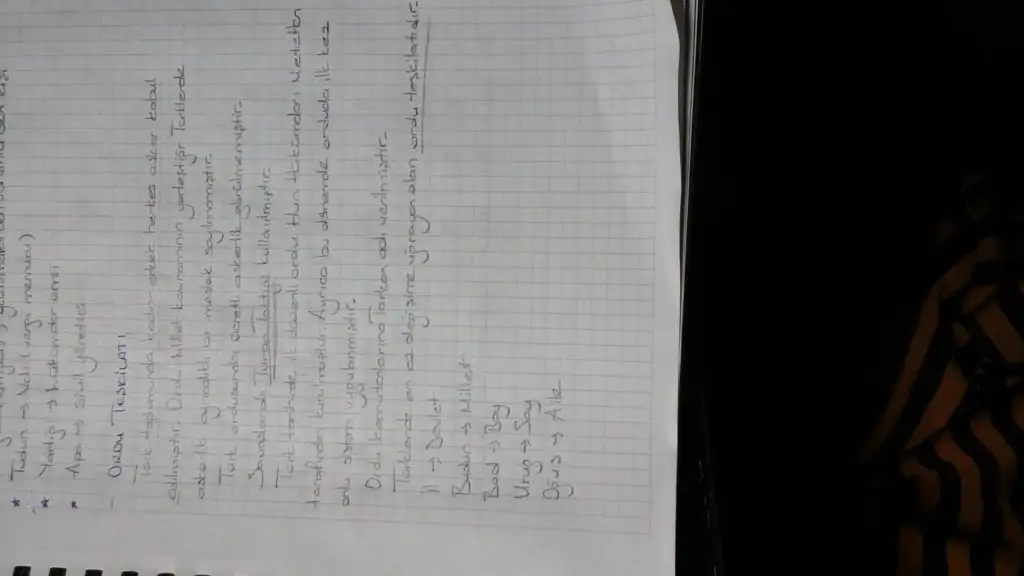 * Tudun → Vali (vergi memuru)
* Yabgu → hükümdar
* Apa → sivil yönetici
- ORDU TEŞKİLATI
Türk toplumunda kadın erkek herkes asker kabul
edilmiştir. Ordu Millet kavramının yerleştiği Türklerde
askerlik ayrıcalıklı bir meslek sayılmamıştır.
Türk ordusunda ücretli askerlik görülmemiştir.
Savaşlarda Turan Taktiği kullanılmıştır.
Türk tarihinde ilk düzenli ordu Hun hükümdarı Mete Han
tarafından kurulmuştur. Ayrıca bu dönemde orduda ilk kez
onlu sistem uygulanmıştır.
Ordu komutanlarına Tarkan adı verilmiştir.
Türklerde en az değişime uğrayan alan ordu teşkilatıdır.
İl → Devlet
Budun → Millet
Bod → Boy
Urug → Soy
Oguş → Aile